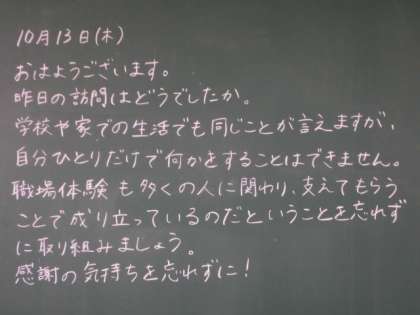 10月13日(木)
おはようございます。
昨日の訪問はどうでしたか。
学校や家での生活でも同じことが言えますが、
自分ひとりだけで何かをすることはできません。
職場体験も多くの人に関わり、支えてもらう
ことで成り立っているのだということを忘れず
に取り組みましょう。
感謝の気持ちを忘れずに!